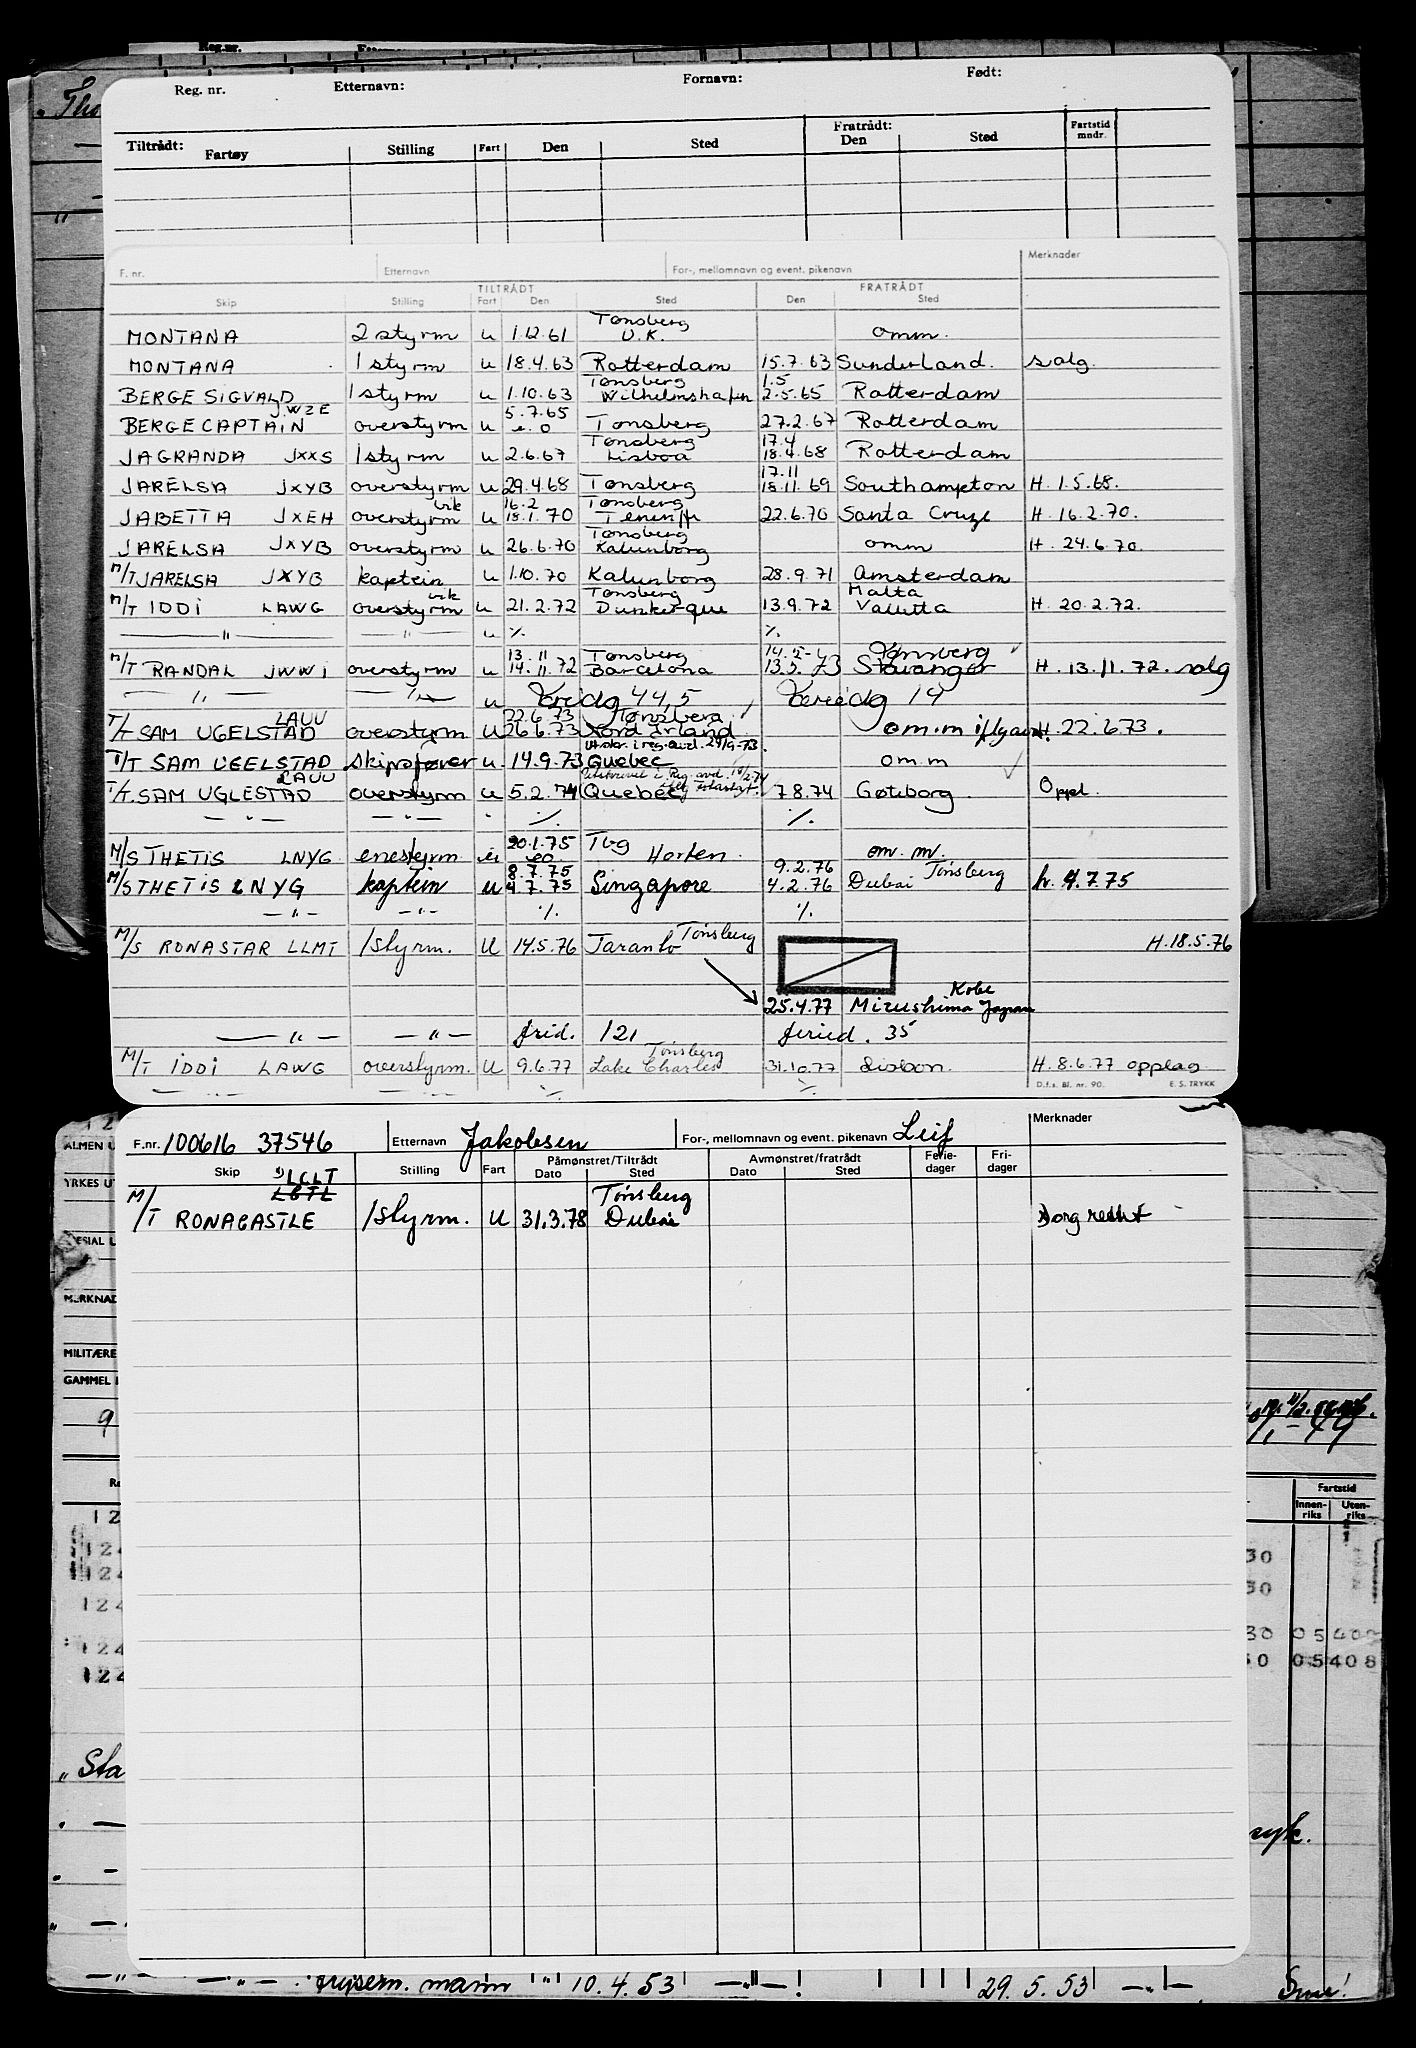 Reg. nr. Etternavn: Fornavn: Født:
Tiltrådt: Fratrådt: Fartstid
Fartøy Stilling Fart Den Sted Den Sted mndr.
F. nr. Etternavn For-, mellomnavn og event. pikenavn Merknader
TILTRÅDT FRATRÅDT
Skip Stilling Fart Den Sted Den Sted
Tønsberg
MONTANA 2 styrm u 1.12.61 U.K. omm.
MONTANA 1 styrm u 18.4.63 Rotterdam 15.7.63 Sunderland. salg.
Tønsberg 1.5
BERGE SIGVALD 1 styrm u 1.10.63 Wilhelmshafen 2.5.65 Rotterdam
JWZE 5.7.65
BERGE CAPTAIN overstyrm u e.o Tønsberg 27.2.67 Rotterdam
Tønsberg 17.4
JAGRANDA JXXS 1 styrm u 2.6.67 Lisboa 18.4.68 Rotterdam
17.11
JARELSA JXYB overstyrm u 29.4.68 Tønsberg 18.11.69 Southampton H. 1.5.68.
vik 16.2 Tønsberg
JABETTA JXEH overstyrm u 18.1.70 Teneriffe 22.6.70 Santa Cruze H. 16.2.70.
Tønsberg
JARELSA JXYB overstyrm u 26.6.70 Kalunborg omm H. 24.6.70.
M/T JARELSA JXYB kaptein u 1.10.70 Kalunborg 28.9.71 Amsterdam
vik Tønsberg Malta
M/T IDDI LAWG overstyrm u 21.2.72 Dunkerque 13.9.72 Valutta H. 20.2.72.
— " — — " — u %. %.
13.11 Tønsberg 14.5 Tønsberg
M/T RANDAL JWWI overstyrm u 14.11.72 Barcelona 13.5.73 Stavanger H. 13.11.72. salg
— " — — " — u Feriedg 44,5 Feriedg 14
LAUU 22.6.73 Tønsberg
T/T SAM UGELSTAD overstyrm u 26.6.73 Nord Irland om.m H. 22.6.73.
T/T SAM UGELSTAD skipsfører u. 14.9.73 Quebec om m
LAUU
T/T. SAM UGLESTAD overstyrm u 5.2.74 Quebec 7.8.74 Gøteborg. Oppl.
— " — — " — " %. %.
20.1.75 Tbg
M/S THETIS LNYG enestyrm eo Horten. om. m.
8.7.75 9.2.76
M/S THETIS LNYG kaptein u 4.7.75 Singapore 4.2.76 Dubai Tønsberg h. 4.7.75
— " — — " — %. %.
Tønsberg
M/S RONASTAR LLMT 1 styrm. U 14.5.76 Taranto H.18.5.76
Kobe
25.4.77 Mizushima Japan
— " — — " — frid. 121 feried. 35
Tønsberg
M/T IDDI LAWG overstyrm. U 9.6.77 Lake Charles 31.10.77 Lisbon. H. 8.6.77 opplag
D.f.s. Bl. nr. 90. E. S. TRYKK
F.nr. 100616 37546 Etternavn Jakobsen For-, mellomnavn og event. pikenavn Leif Merknader
Skip Stilling Fart Påmønstret/Tiltrådt Avmønstret/fratrådt Ferie- Fri-
Dato Sted Dato Sted dager dager
LCLT
LGTL Tønsberg
M/T RONACASTLE 1 styrm. U 31.3.78 Dubai
MILITÆRE
MERKNAD
Fartstid
Innen- Uten-
riks riks
30
30
30 05408
05408
" Sta
mann " 10.4.53 — " — 29.5.53 — " —